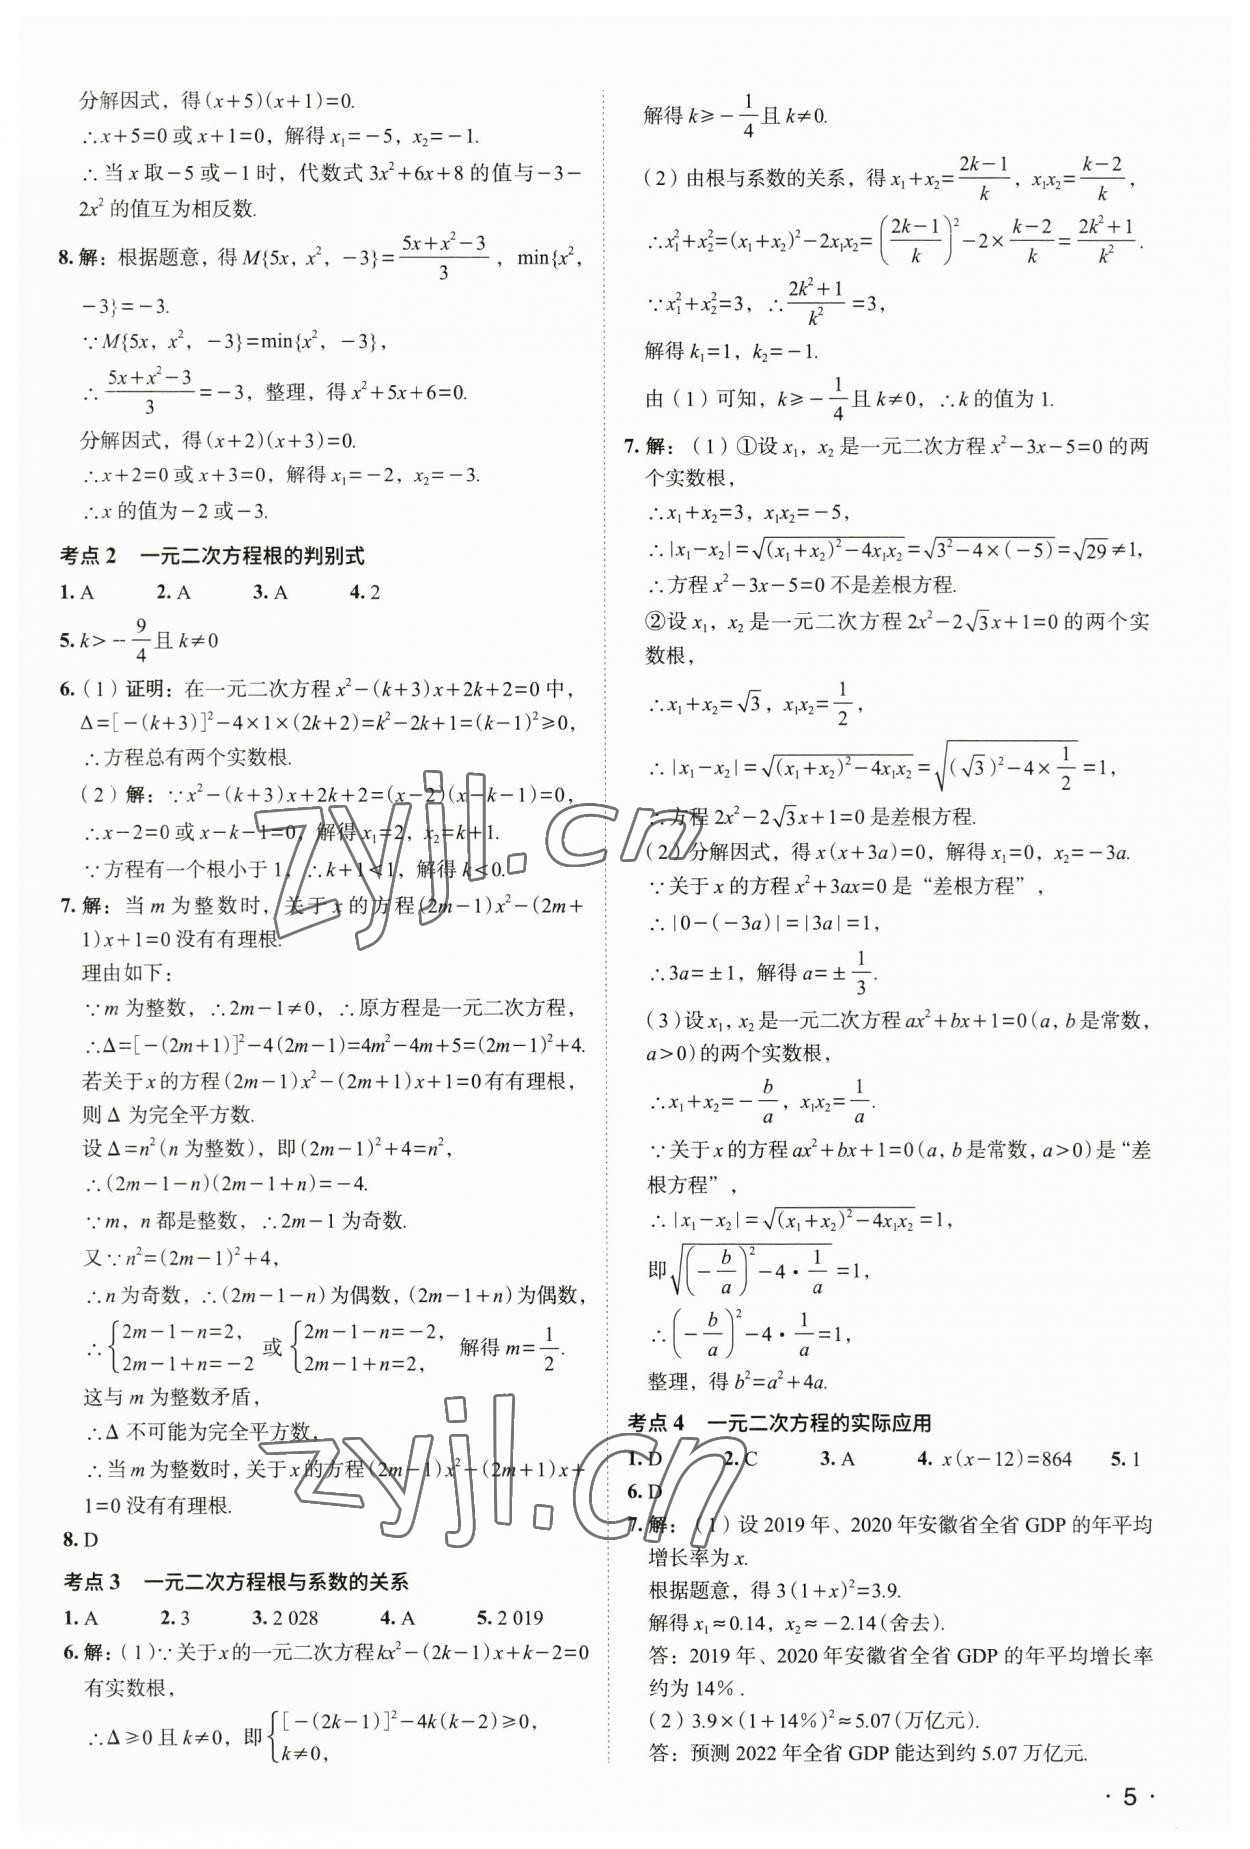 分解因式，得(x+5)(x+1)=0.
∴x+5=0或x+1=0，解得x₁=-5，x₂=-1.
∴当x取-5或-1时，代数式3x²+6x+8的值与-3-
2x²的值互为相反数.
8.解：根据题意，得M{5x，x²，-3}=(5x+x²-3)/3，min{x²，
-3}=-3.
∵M{5x，x²，-3}=min{x²，-3}，
∴(5x+x²-3)/3=-3，整理，得x²+5x+6=0.
分解因式，得(x+2)(x+3)=0.
∴x+2=0或x+3=0，解得x₁=-2，x₂=-3.
∴x的值为-2或-3.
考点2 一元二次方程根的判别式
1. A 2. A 3. A 4. 2
5. k>-9/4且k≠0
6.(1)证明：在一元二次方程x²-(k+3)x+2k+2=0中，
Δ=[-(k+3)]²-4×1×(2k+2)=k²-2k+1=(k-1)²≥0，
∴方程总有两个实数根.
(2)解：∵x²-(k+3)x+2k+2=(x-2)(x-k-1)=0，
∴x-2=0或x-k-1=0，解得x₁=2，x₂=k+1.
∵方程有一个根小于1，∴k+1<1，解得k<0.
7.解：当m为整数时，关于x的方程(2m-1)x²-(2m+
1)x+1=0没有有理根.
理由如下：
∵m为整数，∴2m-1≠0，∴原方程是一元二次方程，
∴Δ=[-(2m+1)]²-4(2m-1)=4m²-4m+5=(2m-1)²+4.
若关于x的方程(2m-1)x²-(2m+1)x+1=0有有理根，
则Δ为完全平方数.
设Δ=n²(n为整数)，即(2m-1)²+4=n²，
∴(2m-1-n)(2m-1+n)=-4.
∵m，n都是整数，∴2m-1为奇数.
又∵n²=(2m-1)²+4，
∴n为奇数，∴(2m-1-n)为偶数，(2m-1+n)为偶数，
∴{2m-1-n=2， 2m-1+n=-2 或 {2m-1-n=-2， 2m-1+n=2， 解得m=1/2.
这与m为整数矛盾，
∴Δ不可能为完全平方数.
∴当m为整数时，关于x的方程(2m-1)x²-(2m+1)x+
1=0没有有理根.
8. D
考点3 一元二次方程根与系数的关系
1. A 2. 3 3. 2 028 4. A 5. 2 019
6.解：(1)∵关于x的一元二次方程kx²-(2k-1)x+k-2=0
有实数根，
∴Δ≥0且k≠0，即{[-(2k-1)]²-4k(k-2)≥0， k≠0，
解得k≥-1/4且k≠0.
(2)由根与系数的关系，得x₁+x₂=(2k-1)/k，x₁x₂=(k-2)/k，
∴x₁²+x₂²=(x₁+x₂)²-2x₁x₂=((2k-1)/k)²-2×(k-2)/k=(2k²+1)/k².
∵x₁²+x₂²=3，∴(2k²+1)/k²=3，
解得k₁=1，k₂=-1.
由(1)可知，k≥-1/4且k≠0，∴k的值为1.
7.解：(1)①设x₁，x₂是一元二次方程x²-3x-5=0的两
个实数根，
∴x₁+x₂=3，x₁x₂=-5，
∴|x₁-x₂|=√((x₁+x₂)²-4x₁x₂)=√(3²-4×(-5))=√29≠1，
∴方程x²-3x-5=0不是差根方程.
②设x₁，x₂是一元二次方程2x²-2√3x+1=0的两个实
数根，
∴x₁+x₂=√3，x₁x₂=1/2，
∴|x₁-x₂|=√((x₁+x₂)²-4x₁x₂)=√((√3)²-4×1/2)=1，
∴方程2x²-2√3x+1=0是差根方程.
(2)分解因式，得x(x+3a)=0，解得x₁=0，x₂=-3a.
∵关于x的方程x²+3ax=0是“差根方程”，
∴|0-(-3a)|=|3a|=1，
∴3a=±1，解得a=±1/3.
(3)设x₁，x₂是一元二次方程ax²+bx+1=0(a，b是常数，
a>0)的两个实数根，
∴x₁+x₂=-b/a，x₁x₂=1/a.
∵关于x的方程ax²+bx+1=0(a，b是常数，a>0)是“差
根方程”，
∴|x₁-x₂|=√((x₁+x₂)²-4x₁x₂)=1，
即√((-b/a)²-4·1/a)=1，
∴(-b/a)²-4·1/a=1，
整理，得b²=a²+4a.
考点4 一元二次方程的实际应用
1. D 2. C 3. A 4. x(x-12)=864 5. 1
6. D
7.解：(1)设2019年、2020年安徽省全省GDP的年平均
增长率为x.
根据题意，得3(1+x)²=3.9.
解得x₁≈0.14，x₂≈-2.14(舍去).
答：2019年、2020年安徽省全省GDP的年平均增长率
约为14%.
(2)3.9×(1+14%)²≈5.07(万亿元).
答：预测2022年全省GDP能达到约5.07万亿元.
·5·
zyjl.cn
zyjl.cn